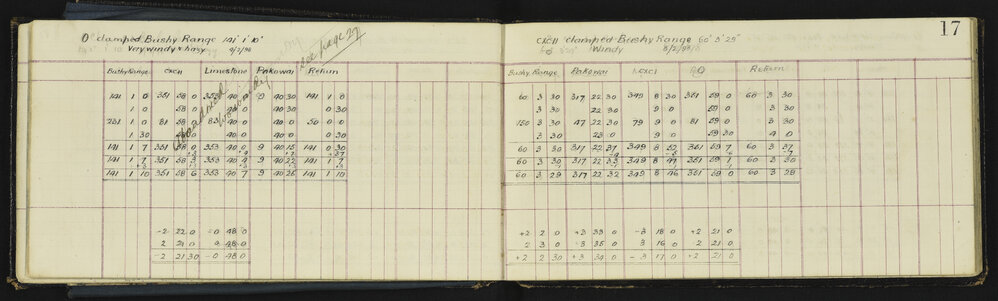 17
O clamped Bushy Range 141° 1' 10"
Very windy & hazy 8/2/98
See page 27
Abandoned
Bushy Range CXCII Limestone Pakowai Return
141 1 0 351 58 0 353 40 0 9 40 30 141 1 0
1 0 58 0 40 0 40 30 0 30
231 1 0 81 58 0 83 40 0 40 0 50 0 0
1 30 58 0 40 0 40 0 0 30
141 1 7 351 58 0 353 40 0 9 40 15 141 0 30
141 1 7 351 58 3 353 40 4 9 40 22 141 1 7
141 1 10 351 58 6 353 40 7 9 40 25 141 1 10
-2 22 0 -0 48 0
2 21 0 0 48 0
-2 21 30 -0 48 0
CXCII clamped Bushy Range 60° 3' 25"
Windy 8/2/98
Bushy Range Pakowai CXCI O Return
60 3 30 317 22 30 349 8 30 351 59 0 60 3 30
3 30 22 30 9 0 59 0 3 30
150 3 30 47 22 30 79 9 0 81 59 0
3 30 23 0 9 0 59 30 4 0
60 3 30 317 22 37 349 8 52 351 59 7 60 3 37
60 3 30 317 22 33 349 8 47 351 59 1 60 3 30
60 3 29 317 22 32 349 8 46 351 59 0 60 3 29
+2 2 0 +3 33 0 -3 18 0 +2 21 0
2 3 0 -3 35 0 3 16 0 -2 21 0
+2 2 30 +3 34 0 -3 17 0 +2 21 0